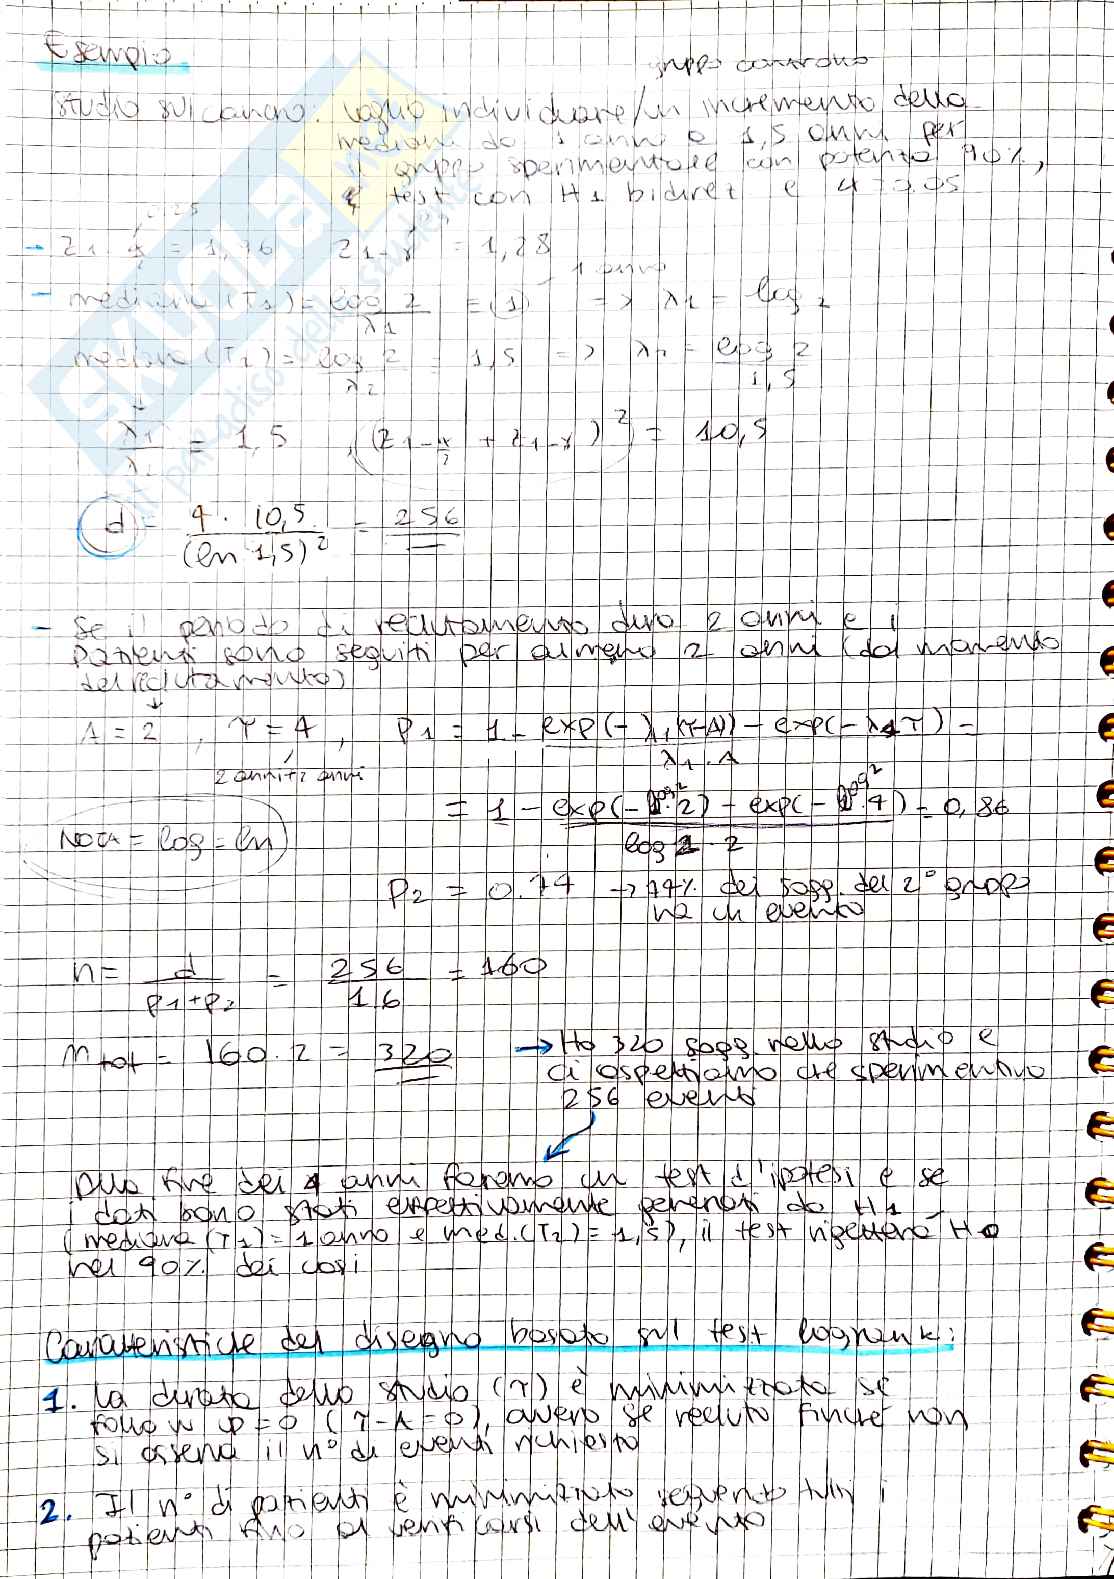 Esempio
gruppo controllo
Studio sul cancro: voglio individuare un incremento della
mediana da 1 anno a 1,5 anni per
il gruppo sperimentale con potenza 90%,
e test con H1 bidirez e α=0.05
0,025
- z1-α/2 = 1,96 z1-γ = 1,28
1 anno
- mediana (T1) = log 2 / λ1 = (1) => λ1 = log 2
mediana (T2) = log 2 / λ2 = 1,5 => λ2 = log 2 / 1,5
λ1 / λ2 = 1,5 , (z1-α/2 + z1-γ)² = 10,5
d = 4 · 10,5 / (ln 1,5)² = 256
- Se il periodo di reclutamento dura 2 anni e i
pazienti sono seguiti per almeno 2 anni (dal momento
del reclutamento)
A = 2 , τ = 4 , p1 = 1 - exp(-λ1(τ-A)) - exp(-λ1τ) / λ1·A =
2 anni+2 anni
= 1 - exp(-log2·2) - exp(-log2·4) / log 2 · 2 = 0,86
NOTA = log = ln
p2 = 0.74 → 74% dei sogg. del 2° gruppo
ha un evento
n = d / p1+p2 = 256 / 1.6 = 160
ntot = 160·2 = 320 → Ho 320 sogg. nello studio e
ci aspettiamo che sperimentino
256 eventi
Alla fine dei 4 anni faremo un test d'ipotesi e se
i dati sono stati effettivamente generati da H1
(mediana (T1) = 1 anno e med.(T2) = 1,5), il test rigetterà H0
nel 90% dei casi
Caratteristiche del disegno basato sul test logrank:
1. La durata dello studio (τ) è minimizzata se
follow up=0 (τ-A=0), ovvero se recluto finché non
si osserva il n° di eventi richiesto
2. Il n° di pazienti è minimizzato seguendo tutti i
pazienti fino al verificarsi dell'evento
SKUOLA.net
il paradiso dello studente